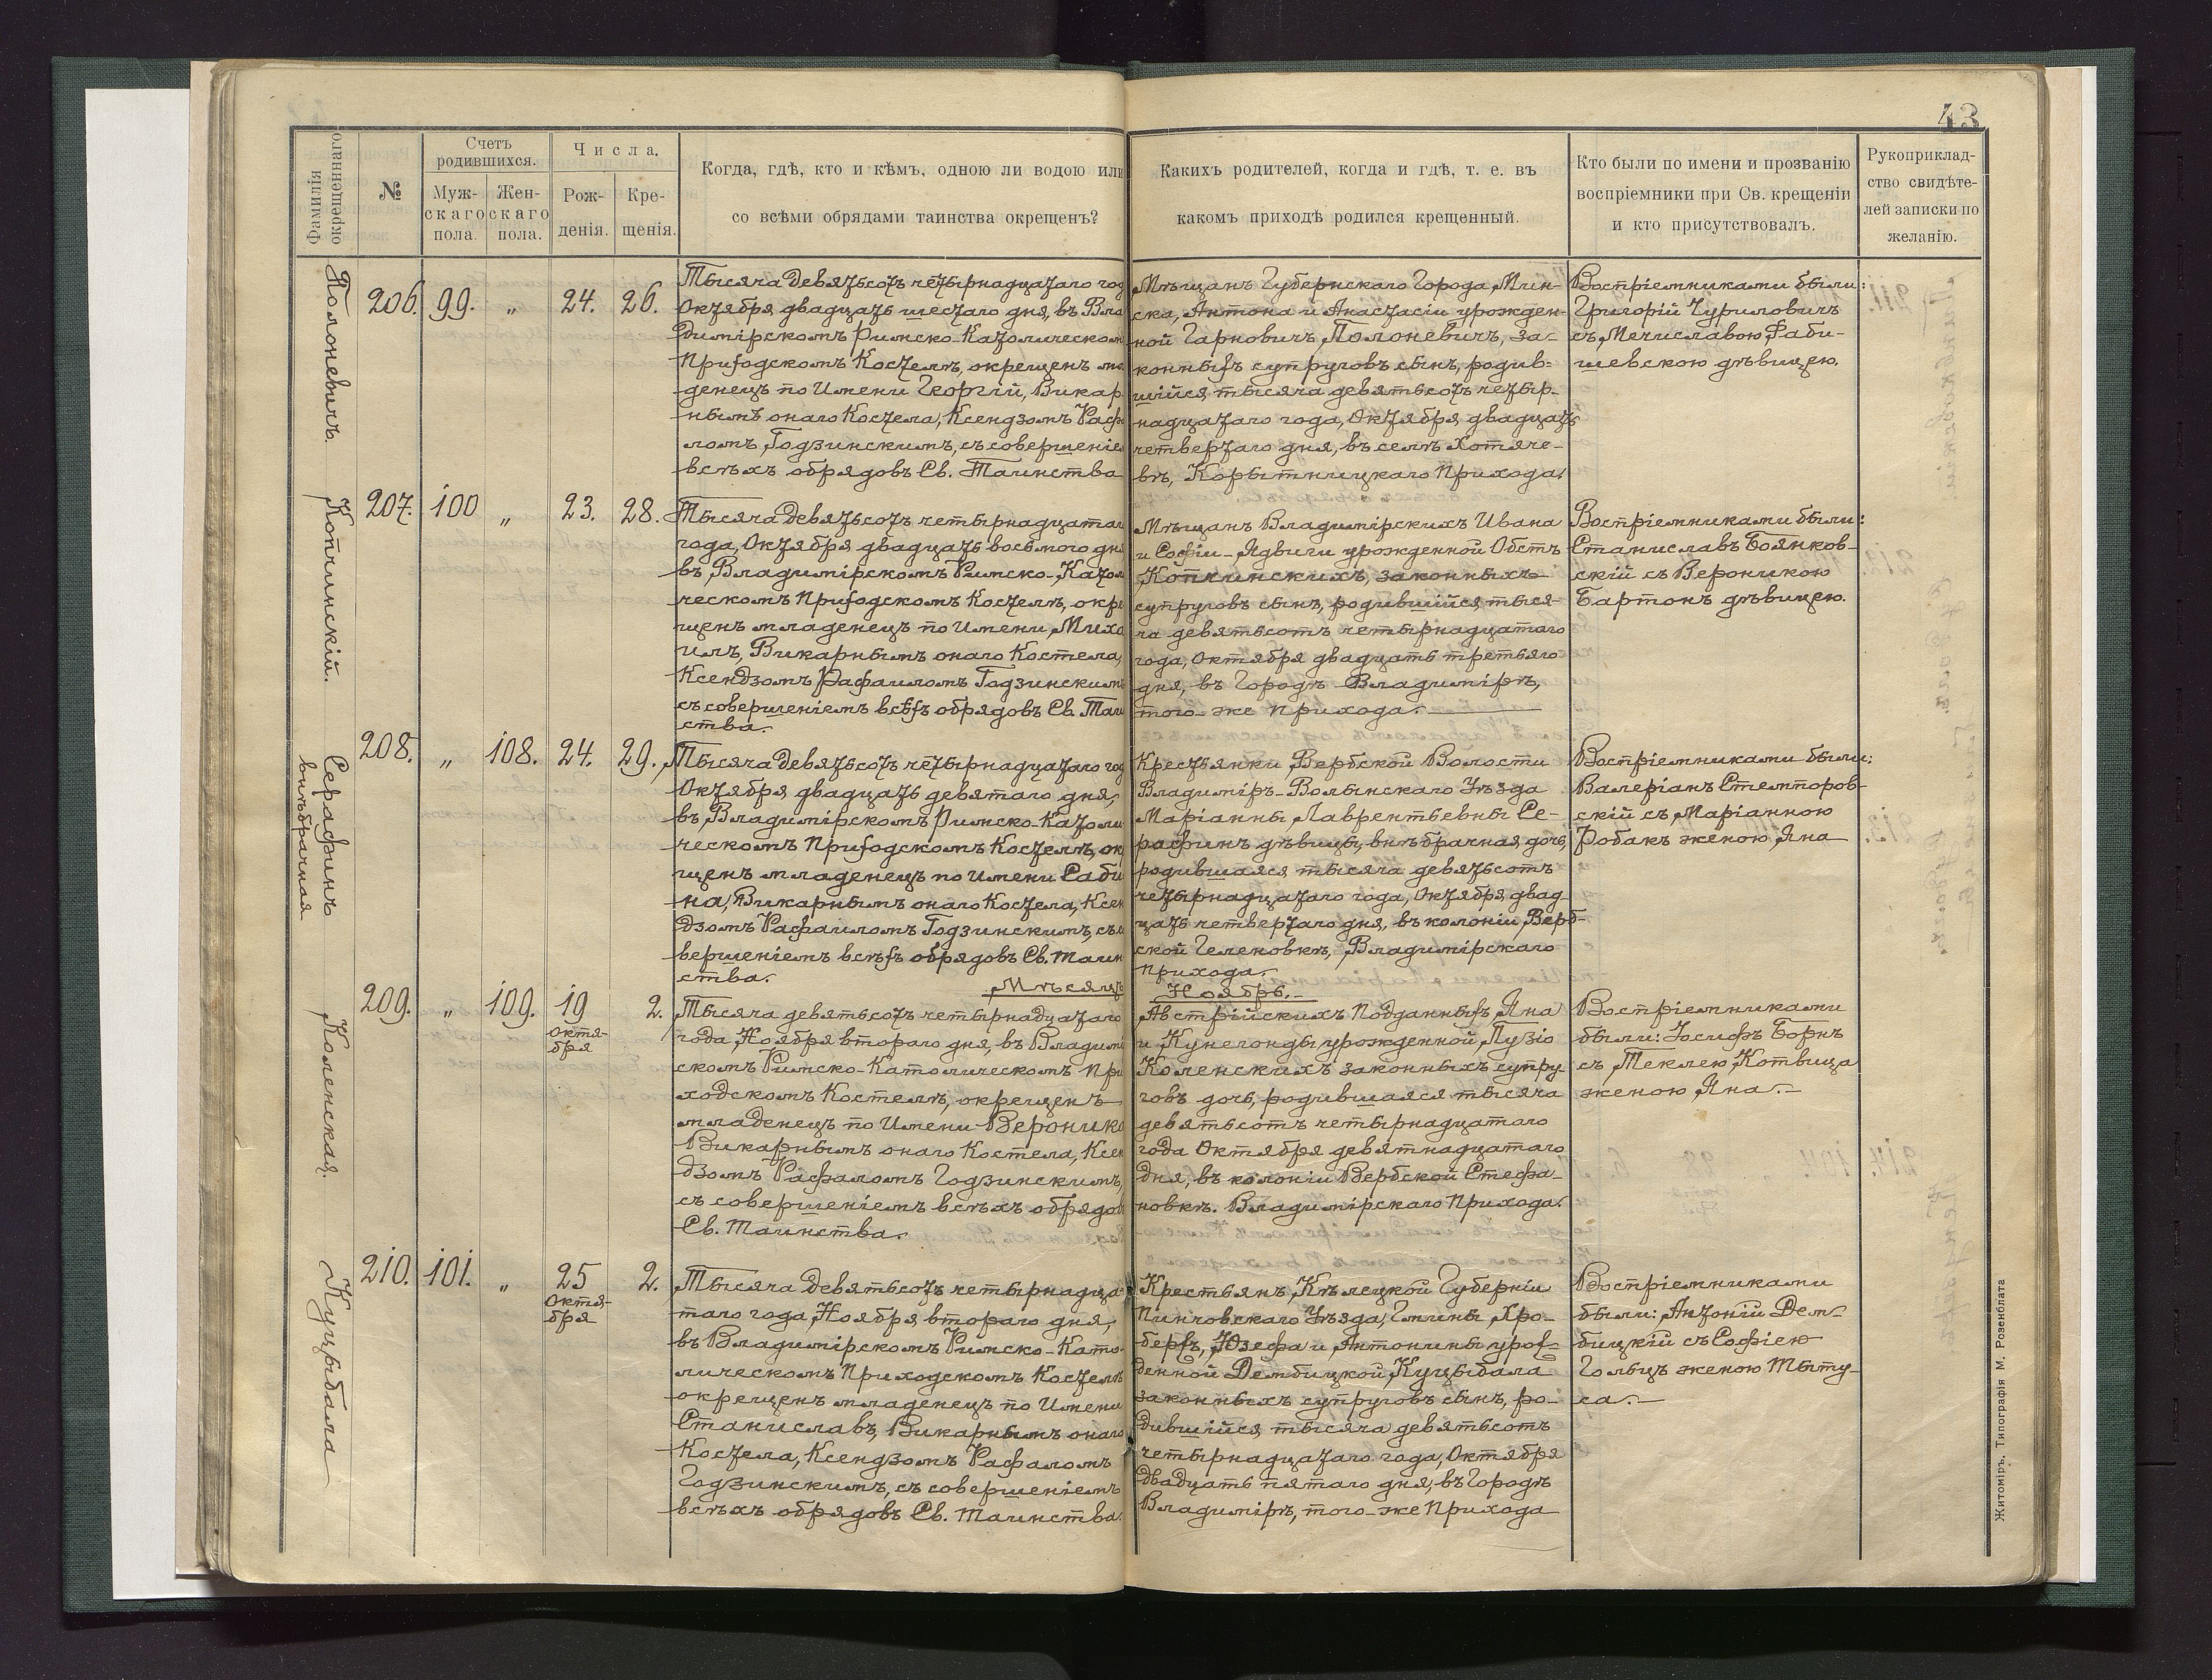 43
Фамилія окрещеннаго
№
Счетъ родившихся.
Мужскаго пола.
Женскаго пола.
Числа.
Рожденія.
Крещенія.
Когда, гдѣ, кто и кѣмъ, одною ли водою или
со всѣми обрядами таинства окрещенъ?
Какихъ родителей, когда и гдѣ, т. е. въ
какомъ приходѣ родился крещенный.
Кто были по имени и прозванію
воспріемники при Св. крещеніи
и кто присутствовалъ.
Рукоприклад-
ство свидѣте-
лей записки по
желанію.
Полоневичъ.
206. 99. „ 24. 26.
Тысяча девятьсотъ четырнадцатаго год
Октября двадцать шестаго дня, въ Вла
димірскомъ Римско-Католическом
Приходскомъ Костелѣ, окрещенъ мла
денецъ по Имени Георгій, Викар
нымъ онаго Костела, Ксендзомъ Рафа
ломъ Годзинскимъ, съ совершеніем
всѣхъ обрядовъ Св. Таинства
Мѣщанъ Губернскаго Города Мин-
ска, Антона и Анастасіи урожден-
ной Гарновичъ, Полоневичъ, за-
конныхъ супруговъ сынъ, родив-
шійся тысяча девятьсотъ четыр-
надцатаго года, Октября двадцать
четвертаго дня, въ селѣ Хотяче-
вѣ, Корытницкаго Прихода.
Воспріемниками были:
Григорій Чуриловичъ
съ Мечиславою Фаби-
шевскою дѣвицею.
Копчинскій.
207. 100 „ 23. 28.
Тысяча девятьсотъ четырнадцатаг
года, Октября двадцать восьмого дня
въ Владимірскомъ Римско-Катол
ческомъ Приходскомъ Костелѣ, окре
щенъ младенецъ по Имени Миха
илъ, Викарнымъ онаго Костела,
Ксендзомъ Рафаиломъ Годзинскимъ
съ совершеніемъ всѣхъ обрядовъ Св. Таин
ства.
Мѣщанъ Владимірскихъ Ивана
и Софіи-Ядвиги урожденной Обстъ
Копчинскихъ, законныхъ
супруговъ сынъ, родившійся тыся-
ча девятьсотъ четырнадцатаго
года, Октября двадцать третьяго
дня, въ Городѣ Владимірѣ,
того-же Прихода.
Воспріемниками были:
Станиславъ Боянков-
скій съ Вероникою
Бартонъ дѣвицею.
Серафинъ
внѣбрачная
208. „ 108. 24. 29.
Тысяча девятьсотъ четырнадцатаго год
Октября двадцать девятаго дня,
въ Владимірскомъ Римско-Католи
ческомъ Приходскомъ Костелѣ, ок
щенъ младенецъ по Имени Саби
на, Викарнымъ онаго Костела, Ксен
дзомъ Рафаиломъ Годзинскимъ, съ
вершеніемъ всѣхъ обрядовъ Св. Таин
ства.
Крестьянки Вербской Волости
Владиміръ-Волынскаго Уѣзда
Маріанны Лаврентьевны Се-
рафинъ дѣвицы, внѣбрачная дочь,
родившаяся тысяча девятьсотъ
четырнадцатаго года, Октября двад-
цать четвертаго дня, въ колоніи Верб-
ской Геленовкѣ, Владимірскаго
Прихода.
Воспріемниками были:
Валеріанъ Стемпоров-
скій съ Маріанною
Робакъ женою Яна
Мѣсяцъ Ноябрь.
Коленская.
209. „ 109. 19 Октя-
бря 2.
Тысяча девятьсотъ четырнадцатаго
года, Ноября второго дня, въ Владими
скомъ Римско-Католическомъ При
ходскомъ Костелѣ, окрещенъ
младенецъ по Имени Вероника
Викарнымъ онаго Костела, Ксен
дзомъ Рафаломъ Годзинскимъ,
съ совершеніемъ всѣхъ обрядов
Св. Таинства.
Австрійскихъ Подданныхъ Яна
и Кунегонды урожденной Пузіо
Коленскихъ законныхъ супру-
говъ дочь, родившаяся тысяча
девятьсотъ четырнадцатаго
года Октября девятнадцатаго
дня, въ колоніи Вербской Стефа-
новкѣ. Владимірскаго Прихода.
Воспріемниками
были: Іосифъ Борнъ
съ Теклею Котвица
женою Яна.
Куцыбала
210. 101. „ 25 Октя-
бря 2.
Тысяча девятьсотъ четырнадца-
таго года, Ноября второго дня,
въ Владимірскомъ Римско-Като-
лическомъ Приходскомъ Костелѣ
окрещенъ младенецъ по Имени
Станиславъ, Викарнымъ онаго
Костела, Ксендзомъ Рафаломъ
Годзинскимъ, съ совершеніемъ
всѣхъ обрядовъ Св. Таинства.
Крестьянъ Кѣлецкой Губерніи
Пинчовскаго Уѣзда, Гмины Хро-
бержъ, Юзефа и Антонины урож-
денной Дембицкой Куцыбала
законныхъ супруговъ сынъ, ро-
дившійся тысяча девятьсотъ
четырнадцатаго года, Октября
двадцать пятаго дня, въ Городѣ
Владимірѣ, того-же Прихода
Воспріемниками
были: Антоній Дем-
бицкій съ Софіею
Гольцъ женою Тыту-
са.
Житоміръ, Типографія М. Розенблата